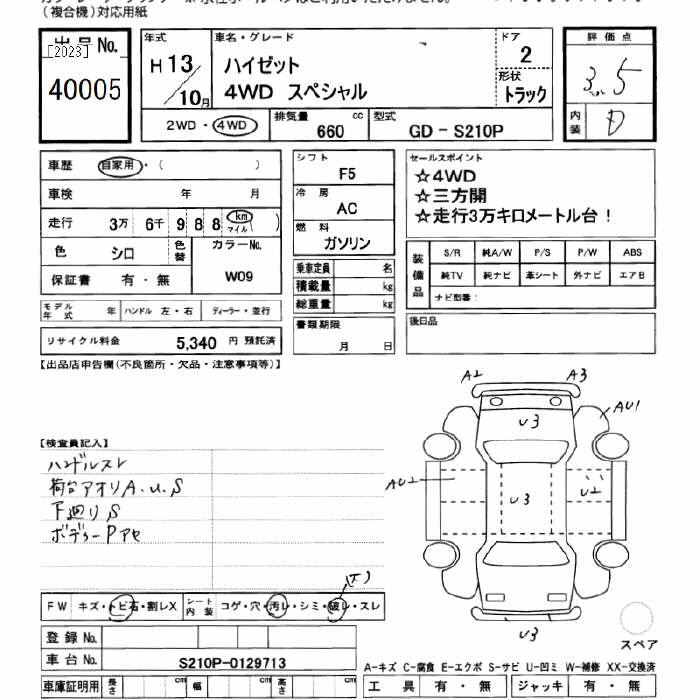 （複合機）対応用紙
出品No.
［2023］
40005
年式
H 13/10月
車名・グレード
ハイゼット
4WD スペシャル
ドア
2
形状
トラック
評価点
3.5
内装
D
2WD・4WD
排気量
660 cc
型式
GD - S210P
車歴 自家用・( )
車検 年 月
走行 3万 6千 9 8 8 km マイル( )
色 シロ 色替
カラーNo.
W09
保証書 有・無
モデル年式 年 ハンドル 左・右 ディーラー・並行
リサイクル料金 5,340 円 預託済
シフト
F5
冷房
AC
燃料
ガソリン
乗車定員 名
積載量 kg
総重量 kg
書類期限
月 日
セールスポイント
☆4WD
☆三方開
☆走行3万キロメートル台！
装備品
S/R 純A/W P/S P/W ABS
純TV 純ナビ 革シート 外ナビ エアB
ナビ型番：
後日品
【出品店申告欄(不良箇所・欠品・注意事項等)】
【検査員記入】
ハンドルスレ
荷台アオリA.U.S
下廻りS
ボディーPアセ
A2
A3
AU1
U3
AU2
U3
U2
U3
スペア
(大)
FW キズ・トビ石・割レX
シート内装 コゲ・穴・汚レ・シミ・破レ・スレ
登録No.
車台No. S210P-0129713
車庫証明用 長さ cm 幅 cm 高さ cm
A-キズ C-腐食 E-エクボ S-サビ U-凹ミ W-補修 XX-交換済
工具 有・無 ジャッキ 有・無